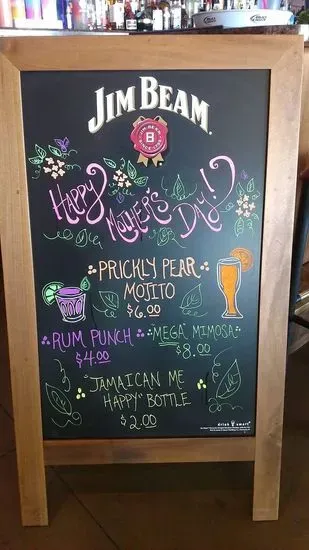 JIM BEAM
Happy
Mother's
Day!
PRICKLY PEAR
MOJITO
$6.00
RUM PUNCH
$4.00
"MEGA" MIMOSA
$8.00
"JAMAICAN ME
HAPPY" BOTTLE
$2.00
drink smart